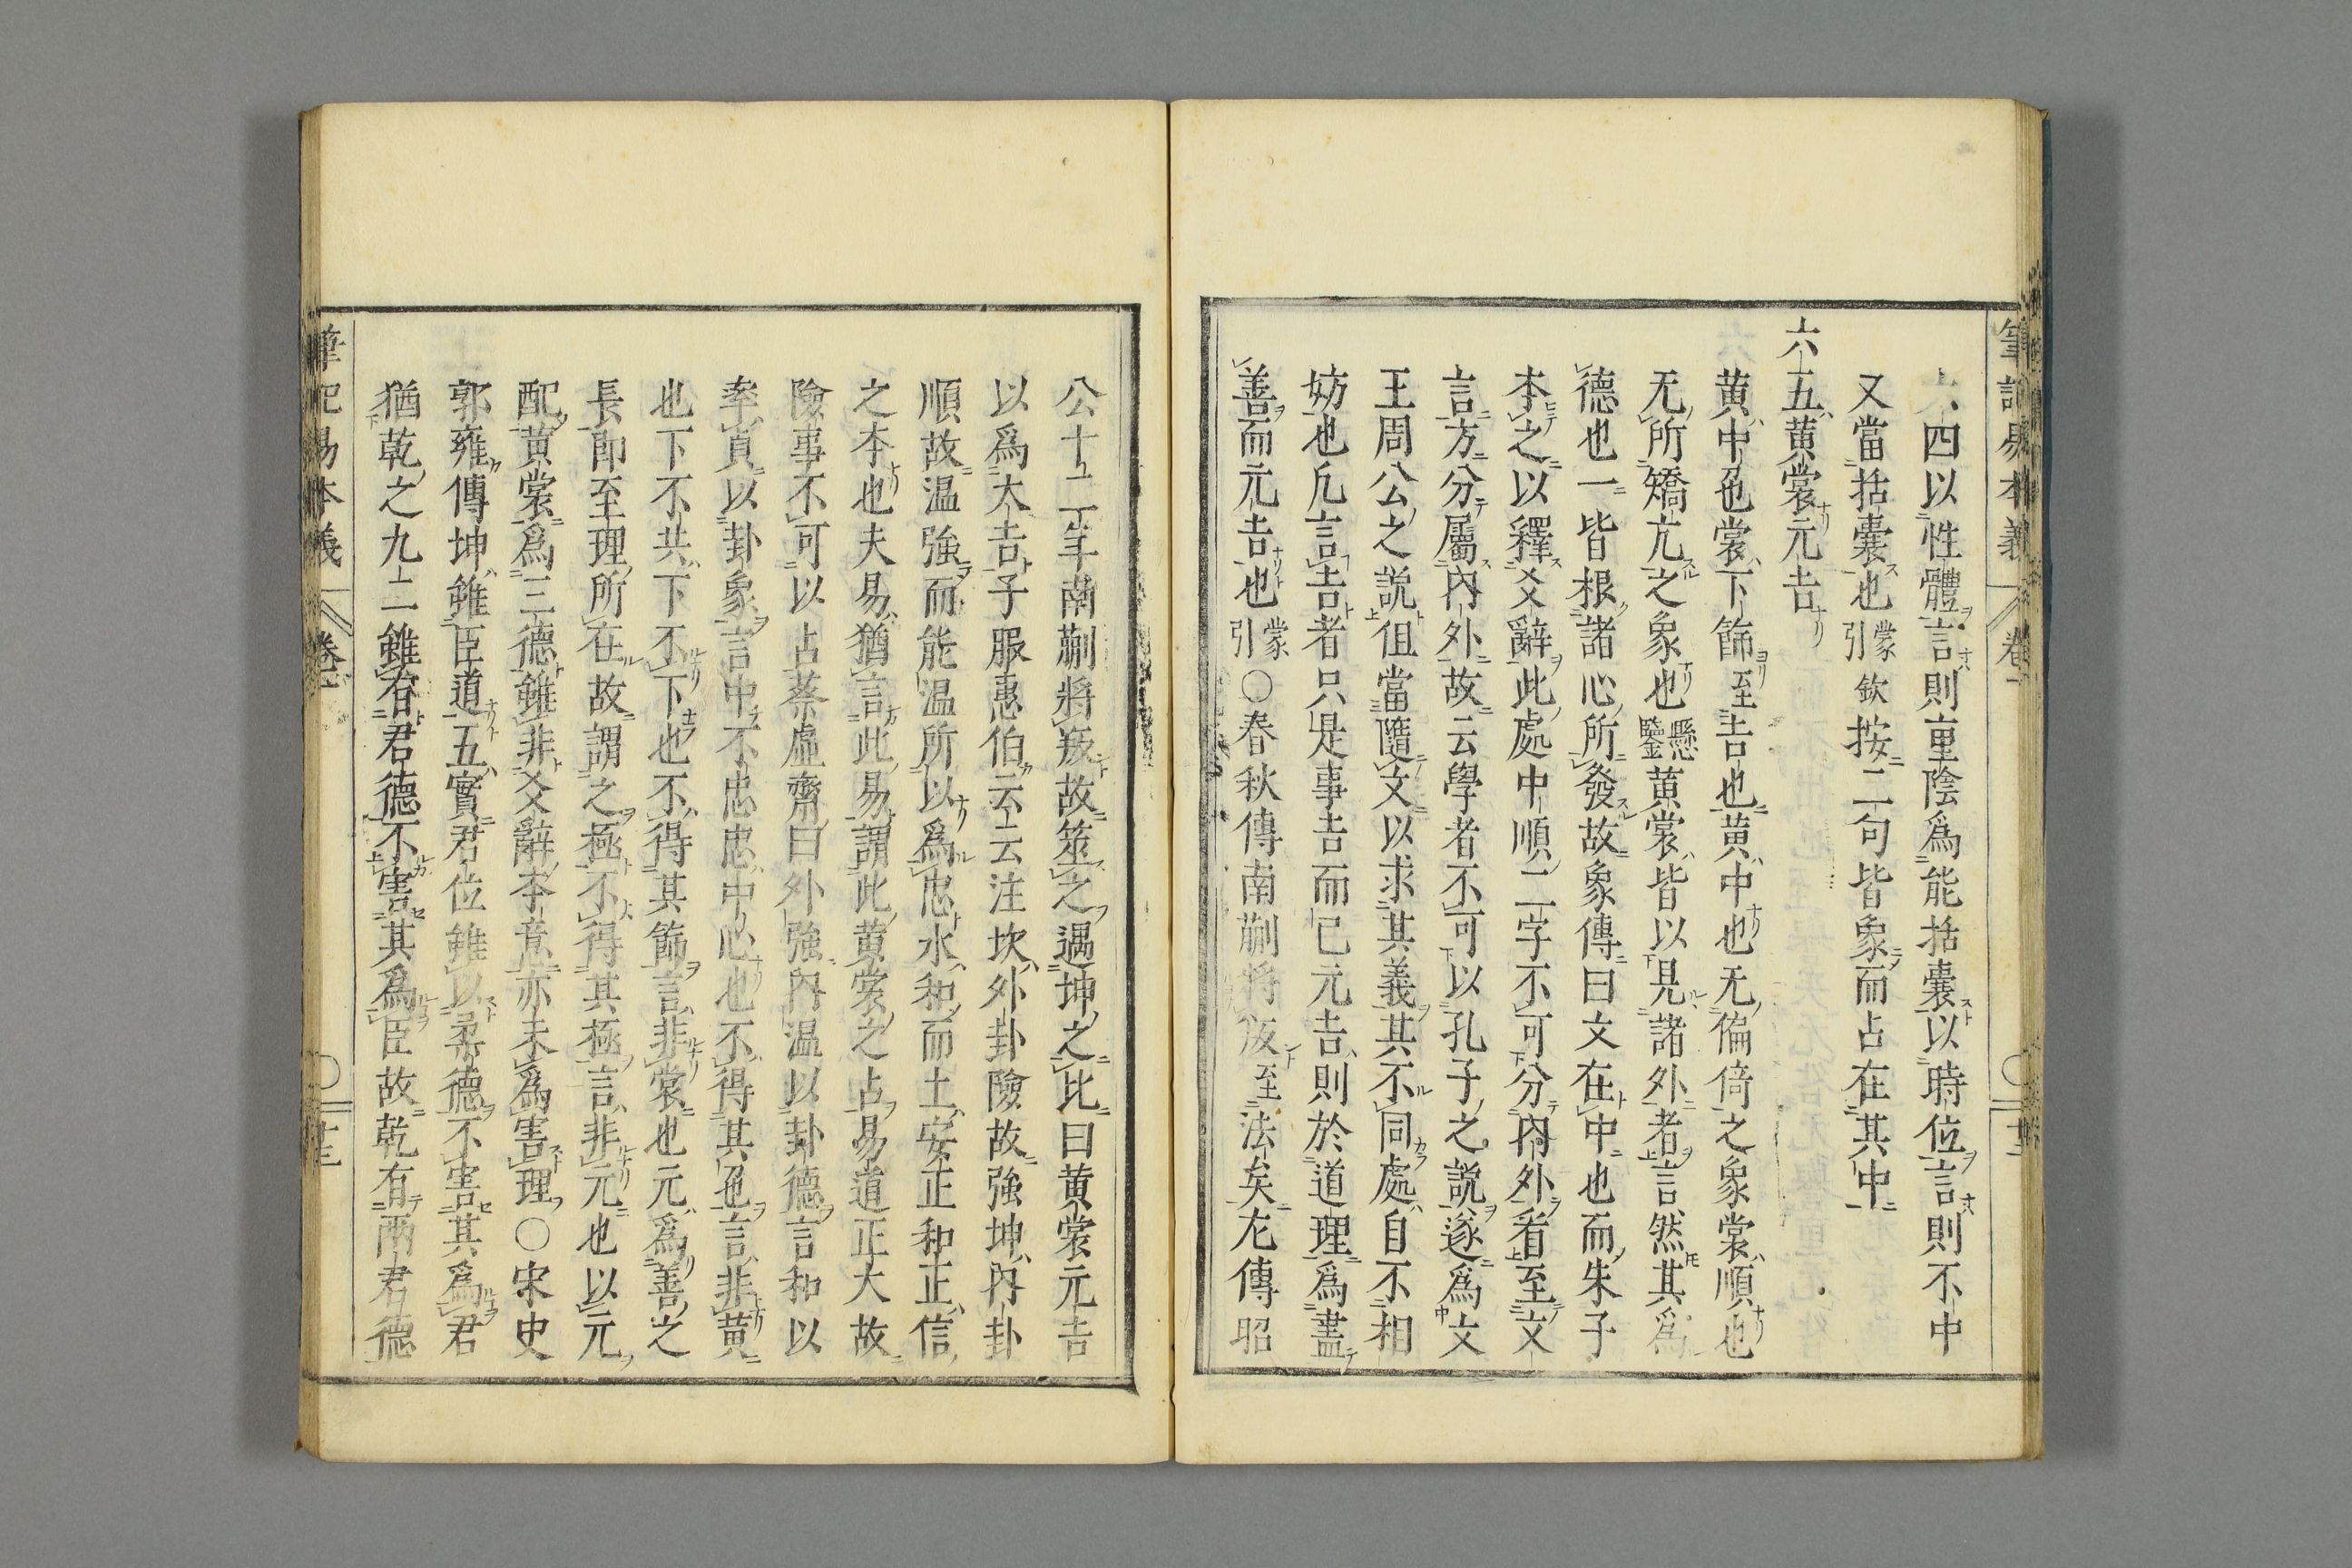 筆記易本義 卷一 十二
六四以性體言則重陰爲能括囊以時位言則不中
又當括囊也蒙引欽按二句皆象而占在其中
六五黄裳元吉
黄中色裳下飾至吉也黄中也无偏倚之象裳順也
无所矯亢之象也懸鑒黄裳皆以見諸外者言然其爲
德也一皆根諸心所發故象傳曰文在中也而朱子
本之以釋爻辭此處中順二字不可分内外看至文
言方分屬内外故云學者不可以孔子之說遂爲文
王周公之説但當隨文以求其義其不同處自不相
妨也凡言吉者只是事吉而已元吉則於道理爲盡
善而元吉也蒙引○春秋傳南蒯將叛至法矣左傳昭
公十二年南蒯將叛故筮之遇坤之比曰黄裳元吉
以爲大吉子服惠伯云云注坎外卦險故強坤内卦
順故温強而能温所以爲忠水和而土安正和正信
之本也夫易猶言此易謂此黄裳之占易道正大故
險事不可以占蔡虚齋曰外強内温以卦德言和以
率貞以卦象言中不忠忠中心也不得其色言非黄
也下不共下不下也不得其飾言非裳也元爲善之
長即至理所在故謂之極不得其極言非元也以元
配黄裳爲三德雖非爻辭本意亦未爲害理○宋史
郭雍傳坤雖臣道五實君位雖以柔德不害其爲君
猶乾之九二雖有君德不害其爲臣故乾有兩君德
筆記易本義 卷一 十三